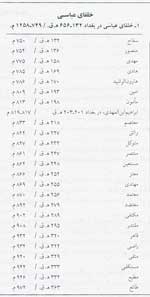 خلفای عباسی
۱. خلفای عباسی در بغداد ۶۵۶،۱۳۲ ه.ق. / ۱۲۵۸،۷۴۹ م.
سفاح ۱۳۲ ه.ق. / ۷۵۰ م.
منصور ۱۳۶ ه.ق. / ۷۵۴ م.
مهدی ۱۵۸ ه.ق. / ۷۷۵ م.
هادی ۱۶۹ ه.ق. / ۷۸۵ م.
هارون‌الرشید ۱۷۰ ه.ق. / م.
امین ۱۹۳ ه.ق. / ۸۰۹ م.
مأمون ۱۹۸ ه.ق. / ۸۱۳ م.
ابراهیم‌بن‌المهدی، در بغداد ۲۰۳،۲۰۱ ه.ق. / ۸۱۹،۸۱۷ م.
معتصم ۲۱۸ ه.ق. / ۸۳۳ م.
واثق ۲۲۷ ه.ق. / ۸۴۲ م.
متوکل ۲۳۲ ه.ق. / ۸۴۷ م.
منتصر ۲۴۷ ه.ق. / ۸۶۱ م.
مستعین ۲۴۸ ه.ق. / ۸۶۲ م.
معتز ۲۵۲ ه.ق. / ۸۶۶ م.
مهتدی ۲۵۵ ه.ق. / ۸۶۹ م.
معتمد ۲۵۶ ه.ق. / ۸۷۰ م.
معتضد ۲۷۹ ه.ق. / ۸۹۲ م.
مکتفی ۲۸۹ ه.ق. / ۹۰۲ م.
مقتدر ۲۹۵ ه.ق. / ۹۰۸ م.
قاهر ۳۲۰ ه.ق. / ۹۳۲ م.
راضی ۳۲۲ ه.ق. / ۹۳۴ م.
متقی ۳۲۹ ه.ق. / ۹۴۰ م.
مستکفی ۳۳۳ ه.ق. / ۹۴۴ م.
مطیع ۳۳۴ ه.ق. / ۹۴۶ م.
طائع ۳۶۳ ه.ق. / ۹۷۴ م.